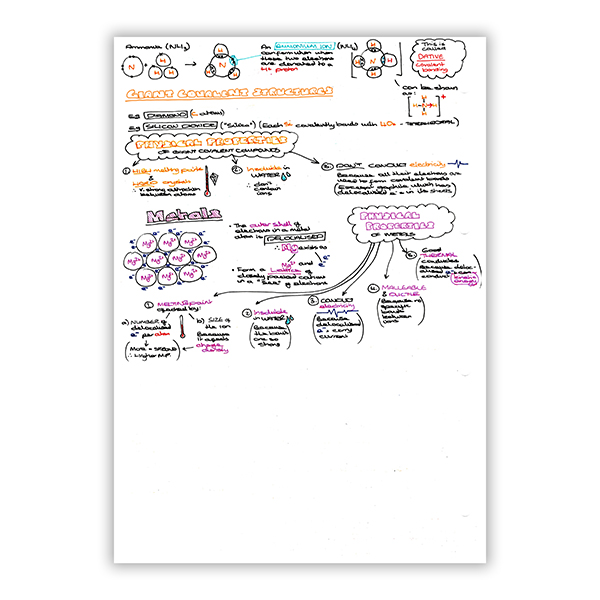 Ammonia (NH3)
N
H
H
H
H
H
N
H
An AMMONIUM ION (NH4)
can form when when
these two electrons
are donated to a
H+ proton
H
H
N
H
H
This is
called
DATIVE
covalent
bonding
can be shown
as:
H
H-N→H
H
+
GIANT COVALENT STRUCTURES
Eg DIAMOND (C atoms)
Eg SILICON DIOXIDE ("Silica") (Each Si covalently bonds with 4 Os - TETRAHEDRAL)
PHYSICAL PROPERTIES
OF GIANT COVALENT COMPOUNDS
1 HIGH melting points
&
HARD crystals
∴ V. strong attraction
between atoms
2 Insoluble in
WATER
∴ don't
contain
ions
3. DON'T CONDUCT electricity
Because all their electrons are
used to form covalent bonds
Except graphite which has
delocalised e- in its sheets
Metals
Mg2+ Mg2+ Mg2+
Mg2+ Mg2+ Mg2+ Mg2+
Mg2+ Mg2+ Mg2+
• The outer shell of
electrons in a metal
atom is DELOCALISED
∴ Mg exists as
Mg2+ and e-
• Form a Lattice of
closely packed cations
in a "sea" of electrons
PHYSICAL
PROPERTIES
OF METALS
1 MELTING point
affected by:
a) NUMBER of
delocalised
e- per atom
(More = STRONG
∴ Higher MP)
b) SIZE of
the ion
Because
it affects
charge
density
2. Insoluble
in WATER
(Because
the bonds
are so
strong)
3. CONDUCT
electricity
(Because
delocalised
e- carry
current)
4. MALLEABLE
& DUCTILE
(Because no
specific
bonds
between
ions)
5. Good
THERMAL
conductors
Because deloc-
alised e- carry
kinetic energy